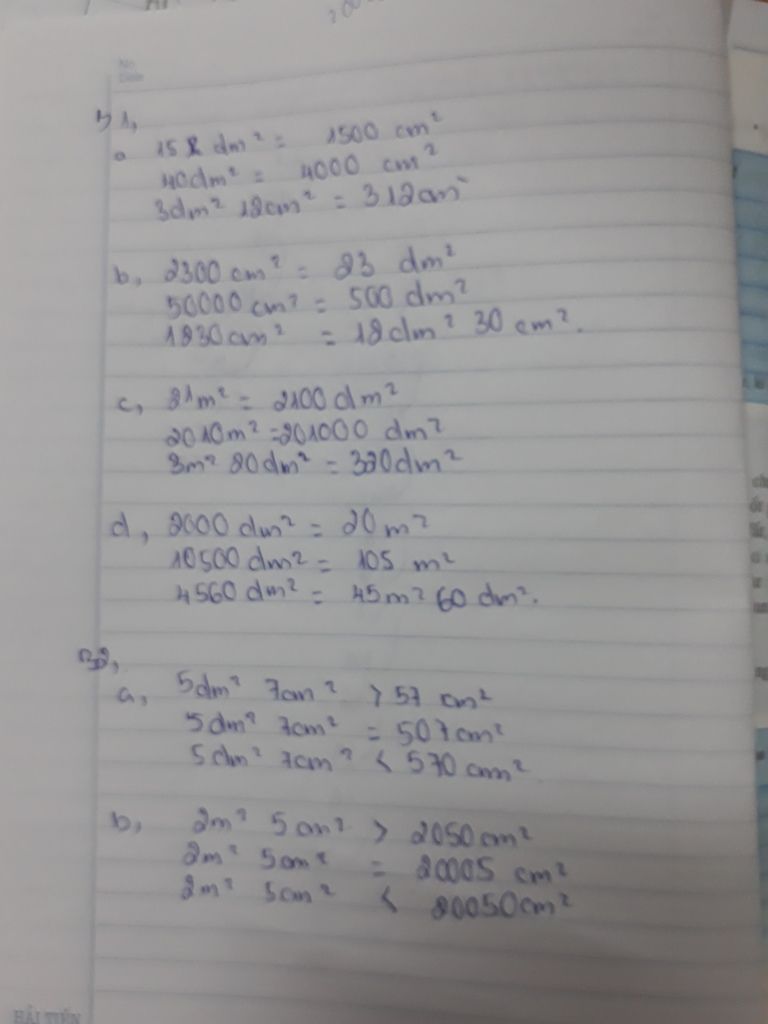 No
Date
B1,
a 15 dm² = 1500 cm²
40dm² = 4000 cm²
3dm² 12cm² = 312cm²
b, 2300 cm² = 23 dm²
50000 cm² = 500 dm²
1230cm² = 12dm² 30 cm².
c, 21m² = 2100 dm²
2010m² =201000 dm²
3m² 20dm² = 320dm²
d, 2000 dm² = 20 m²
10500 dm² = 105 m²
4560 dm² = 45m² 60 dm².
B2,
a, 5dm² 7cm² > 57 cm²
5dm² 7cm² = 507cm²
5dm² 7cm² < 570 cm²
b, 2m² 5cm² > 2050cm²
2m² 5cm² = 20005 cm²
2m² 5cm² < 20050cm²
HẢI TIẾN